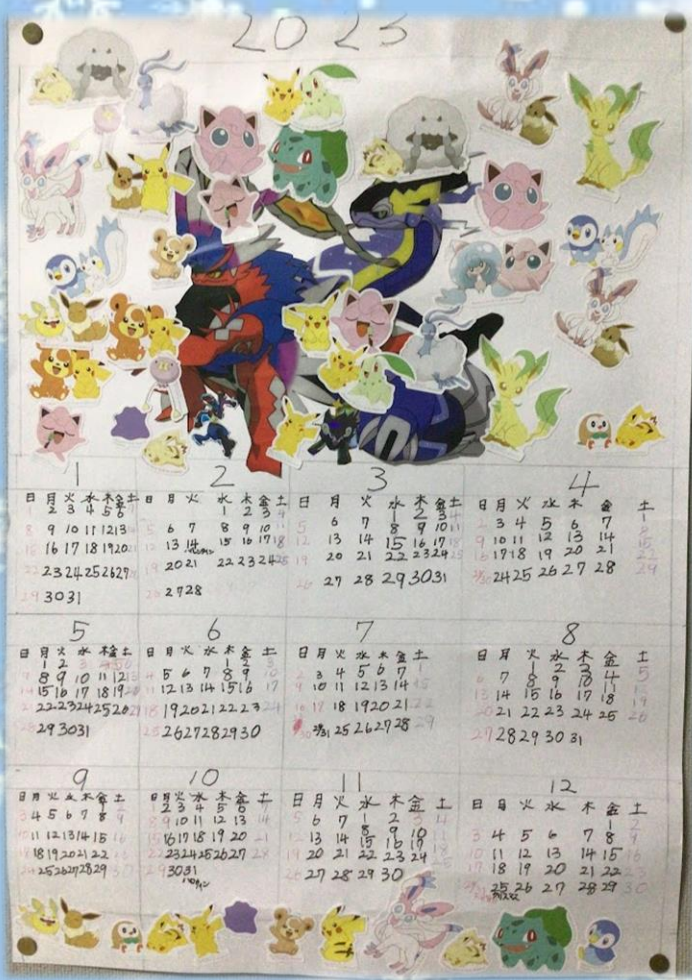 2023
1
日 月 火 水 木 金 土
1 2 3 4 5 6 7
8 9 10 11 12 13
15 16 17 18 19 20 21
22 23 24 25 26 27
29 30 31
2
日 月 火 水 木 金 土
1 2 3 4
5 6 7 8 9 10 11
12 13 14 15 16 17 18
19 20 21 22 23 24 25
26 27 28
3
日 月 火 水 木 金 土
1 2 3 4
5 6 7 8 9 10 11
12 13 14 15 16 17 18
19 20 21 22 23 24 25
26 27 28 29 30 31
4
日 月 火 水 木 金 土
1
2 3 4 5 6 7 8
9 10 11 12 13 14 15
16 17 18 19 20 21 22
23/30 24 25 26 27 28 29
5
日 月 火 水 木 金 土
1 2 3 4 5 6
7 8 9 10 11 12 13
14 15 16 17 18 19 20
21 22 23 24 25 26 27
28 29 30 31
6
日 月 火 水 木 金 土
1 2 3
4 5 6 7 8 9 10
11 12 13 14 15 16 17
18 19 20 21 22 23 24
25 26 27 28 29 30
7
日 月 火 水 木 金 土
1
2 3 4 5 6 7
9 10 11 12 13 14 15
16 17 18 19 20 21 22
30 24/31 25 26 27 28 29
8
日 月 火 水 木 金 土
1 2 3 4 5
6 7 8 9 10 11 12
13 14 15 16 17 18 19
20 21 22 23 24 25 26
27 28 29 30 31
9
日 月 火 水 木 金 土
1 2
3 4 5 6 7 8 9
10 11 12 13 14 15 16
17 18 19 20 21 22 23
24 25 26 27 28 29 30
10
日 月 火 水 木 金 土
1 2 3 4 5 6 7
8 9 10 11 12 13 14
15 16 17 18 19 20 21
22 23 24 25 26 27 28
29 30 31
ハロウィン
11
日 月 火 水 木 金 土
1 2 3 4
5 6 7 8 9 10 11
12 13 14 15 16 17 18
19 20 21 22 23 24 25
26 27 28 29 30
12
日 月 火 水 木 金 土
1 2
3 4 5 6 7 8 9
10 11 12 13 14 15 16
17 18 19 20 21 22 23
24/31 25 26 27 28 29 30
クリスマス